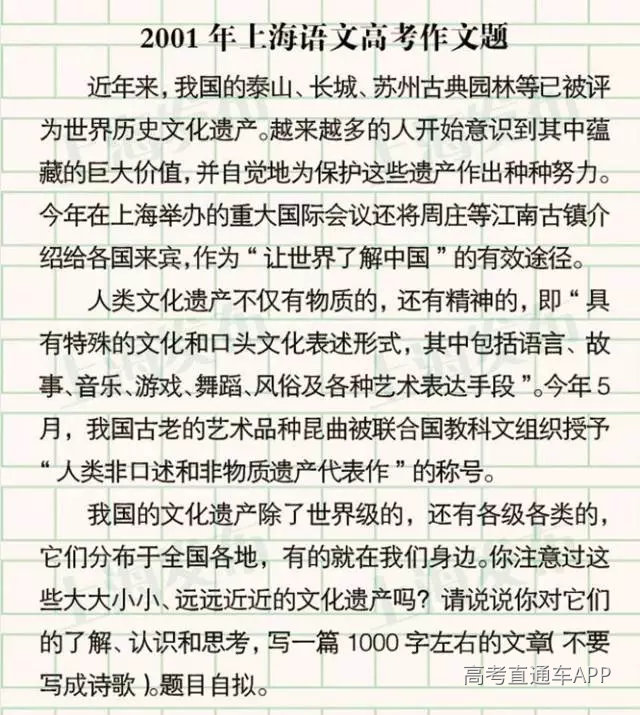 2001 年上海语文高考作文题
近年来，我国的泰山、长城、苏州古典园林等已被评
为世界历史文化遗产。越来越多的人开始意识到其中蕴
藏的巨大价值，并自觉地为保护这些遗产作出种种努力。
今年在上海举办的重大国际会议还将周庄等江南古镇介
绍给各国来宾，作为“让世界了解中国”的有效途径。
人类文化遗产不仅有物质的，还有精神的，即“具
有特殊的文化和口头文化表述形式，其中包括语言、故
事、音乐、游戏、舞蹈、风俗及各种艺术表达手段”。今年 5
月，我国古老的艺术品种昆曲被联合国教科文组织授予
“人类非口述和非物质遗产代表作”的称号。
我国的文化遗产除了世界级的，还有各级各类的，
它们分布于全国各地，有的就在我们身边。你注意过这
些大大小小、远远近近的文化遗产吗？请说说你对它们
的了解、认识和思考，写一篇 1000 字左右的文章（不要
写成诗歌）。题目自拟。
高考直通车APP